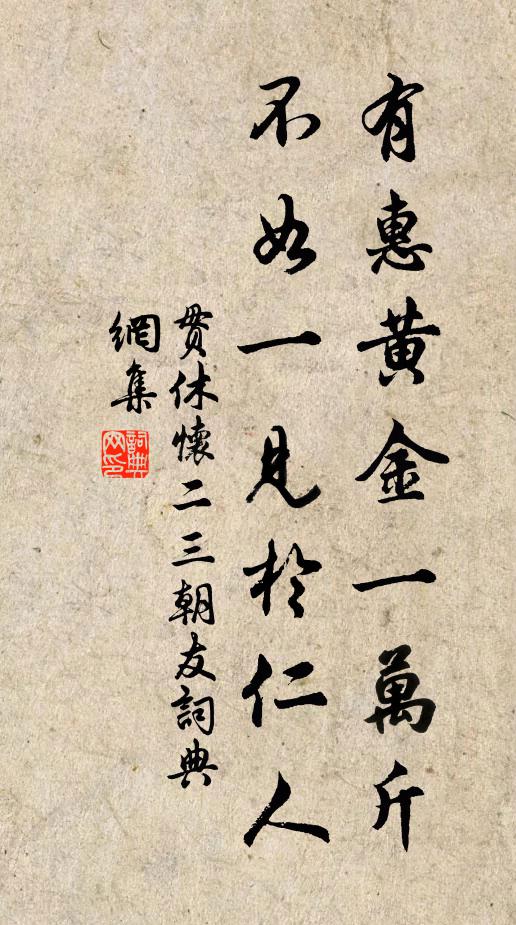 有惠黃金一萬斤
不如一見於仁人
貫休懷二三朝友詞典
網集
詞典
网印